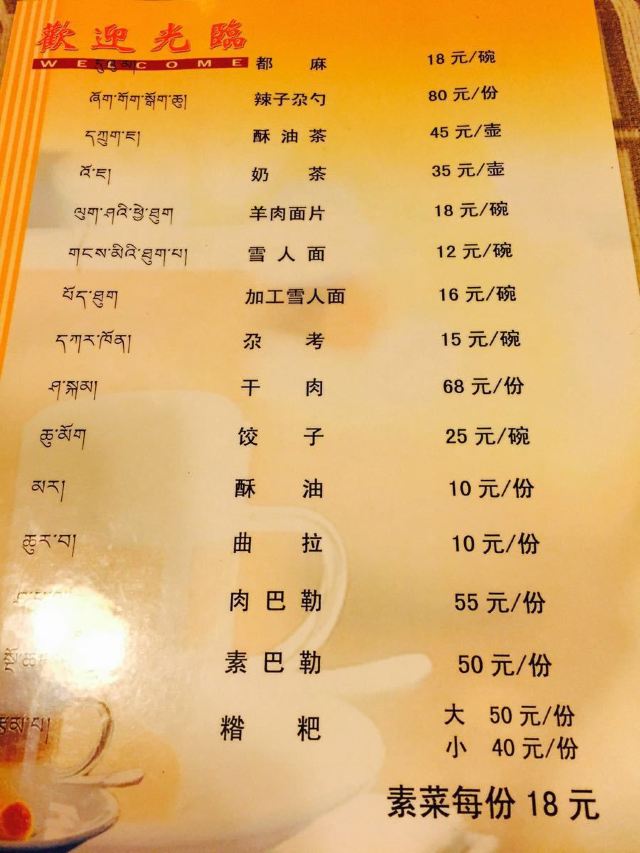 歡迎光臨
WELCOME
都麻 18元/碗
ཞོག་གོག་སྒོག་ཆུ། 辣子尕勺 80元/份
དཀྲུག་ཇ། 酥油茶 45元/壶
འོ་ཇ། 奶茶 35元/壶
ལུག་ཤའི་ཕྱེ་ཐུག 羊肉面片 18元/碗
གངས་མིའི་ཐུག་པ། 雪人面 12元/碗
བོད་ཐུག 加工雪人面 16元/碗
དཀར་ཁོན། 尕考 15元/碗
ཤ་སྐམ། 干肉 68元/份
ཆུ་མོག 饺子 25元/碗
མར། 酥油 10元/份
ཆུར་བ། 曲拉 10元/份
肉巴勒 55元/份
素巴勒 50元/份
糌粑 大 50元/份
小 40元/份
素菜每份18元